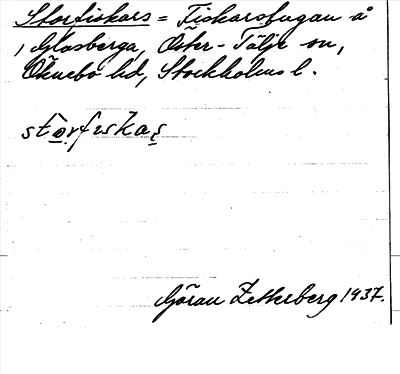 Storfiskars = Fiskarsstugan å
, Glasberga, Öster-Tälje sn,
Öknebo hd, Stockholms l.
storfiskas
Göran Zetterberg 1937.